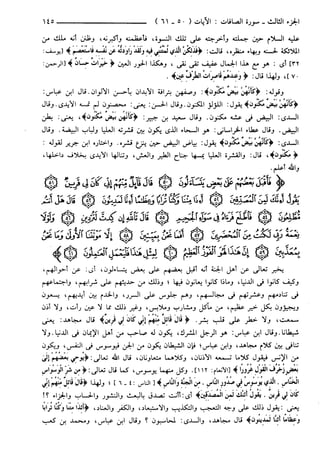 الجزء الثالث - سورة الصافات: الآيات (٥٠ - ٦١) ١٤٥
عليه السلام حين جملته وأخرجته على تلك النسوة، فأعظمنه وأكبرنه، وظنن أنه ملك من
الملائكة لحسنه وبهاء منظره، قالت: ﴿فَذَٰلِكُنَّ الَّذِي لُمْتُنَّنِي فِيهِ وَلَقَدْ رَاوَدتُّهُ عَن نَّفْسِهِ فَاسْتَعْصَمَ﴾ [يوسف:
٣٢] أي: هو مع هذا الجمال عفيف تقي نقي، وهكذا الحور العين ﴿خَيْرَاتٌ حِسَانٌ﴾ [الرحمن:
٧٠]، ولهذا قال: ﴿وَعِندَهُمْ قَاصِرَاتُ الطَّرْفِ عِينٌ﴾.
وقوله: ﴿كَأَنَّهُنَّ بَيْضٌ مَّكْنُونٌ﴾: وصفهن بترافة الأبدان بأحسن الألوان. قال ابن عباس:
﴿كَأَنَّهُنَّ بَيْضٌ مَّكْنُونٌ﴾ يقول: اللؤلؤ المكنون. وقال الحسن: يعني: محصون لم تمسه الأيدي. وقال
السدي: البيض في عشه مكنون. وقال سعيد بن جبير: ﴿كَأَنَّهُنَّ بَيْضٌ مَّكْنُونٌ﴾، يعني: بطن
البيض. وقال عطاء الخراساني: هو السحاء الذي يكون بين قشرته العليا ولباب البيضة. وقال
السدي: ﴿كَأَنَّهُنَّ بَيْضٌ مَّكْنُونٌ﴾ يقول: بياض البيض حين ينزع قشره. واختاره ابن جرير لقوله:
﴿مَّكْنُونٌ﴾، قال: والقشرة العليا يمسها جناح الطير والعش، وتنالها الأيدي بخلاف داخلها،
والله أعلم.
﴿فَأَقْبَلَ بَعْضُهُمْ عَلَىٰ بَعْضٍ يَتَسَاءَلُونَ ﴿٥٠﴾ قَالَ قَائِلٌ مِّنْهُمْ إِنِّي كَانَ لِي قَرِينٌ
﴿٥١﴾ يَقُولُ أَإِنَّكَ لَمِنَ الْمُصَدِّقِينَ ﴿٥٢﴾ أَإِذَا مِتْنَا وَكُنَّا تُرَابًا وَعِظَامًا أَإِنَّا لَمَدِينُونَ ﴿٥٣﴾ قَالَ هَلْ أَنتُم
مُّطَّلِعُونَ ﴿٥٤﴾ فَاطَّلَعَ فَرَآهُ فِي سَوَاءِ الْجَحِيمِ ﴿٥٥﴾ قَالَ تَاللَّهِ إِن كِدتَّ لَتُرْدِينِ ﴿٥٦﴾ وَلَوْلَا نِعْمَةُ رَبِّي
لَكُنتُ مِنَ الْمُحْضَرِينَ ﴿٥٧﴾ أَفَمَا نَحْنُ بِمَيِّتِينَ ﴿٥٨﴾ إِلَّا مَوْتَتَنَا الْأُولَىٰ وَمَا نَحْنُ
بِمُعَذَّبِينَ ﴿٥٩﴾ إِنَّ هَٰذَا لَهُوَ الْفَوْزُ الْعَظِيمُ ﴿٦٠﴾ لِمِثْلِ هَٰذَا فَلْيَعْمَلِ الْعَامِلُونَ ﴿٦١﴾﴾
يخبر تعالى عن أهل الجنة أنه أقبل بعضهم على بعض يتساءلون، أي: عن أحوالهم،
وكيف كانوا في الدنيا، وماذا كانوا يعانون فيها؟ وذلك من حديثهم على شرابهم، واجتماعهم
في تنادمهم وعشرتهم في مجالسهم، وهم جلوس على السرر، والخدم بين أيديهم، يسعون
ويجيئون بكل خير عظيم، من مآكل ومشارب وملابس، وغير ذلك مما لا عين رأت، ولا أذن
سمعت، ولا خطر على قلب بشر. ﴿قَالَ قَائِلٌ مِّنْهُمْ إِنِّي كَانَ لِي قَرِينٌ﴾ قال مجاهد: يعني
شيطانا. وقال ابن عباس: هو الرجل المشرك، يكون له صاحب من أهل الإيمان في الدنيا. ولا
تنافي بين كلام مجاهد، وابن عباس؛ فإن الشيطان يكون من الجن فيوسوس في النفس، ويكون
من الإنس فيقول كلاما تسمعه الأذنان، وكلاهما متعاونان، قال الله تعالى: ﴿يُوحِي بَعْضُهُمْ إِلَىٰ
بَعْضٍ زُخْرُفَ الْقَوْلِ غُرُورًا﴾ [الأنعام: ١١٢]. وكل منهما يوسوس، كما قال تعالى: ﴿مِن شَرِّ الْوَسْوَاسِ
الْخَنَّاسِ. الَّذِي يُوَسْوِسُ فِي صُدُورِ النَّاسِ. مِنَ الْجِنَّةِ وَالنَّاسِ﴾ [الناس: ٤ - ٦]؛ ولهذا ﴿قَالَ قَائِلٌ مِّنْهُمْ إِنِّي
كَانَ لِي قَرِينٌ. يَقُولُ أَإِنَّكَ لَمِنَ الْمُصَدِّقِينَ﴾ أي: أأنت تصدق بالبعث والنشور والحساب والجزاء؟!
يعني: يقول ذلك على وجه التعجب والتكذيب والاستبعاد، والكفر والعناد، ﴿أَإِذَا مِتْنَا وَكُنَّا تُرَابًا
وَعِظَامًا أَإِنَّا لَمَدِينُونَ﴾ قال مجاهد، والسدي: لمحاسبون؟ وقال ابن عباس، ومحمد بن كعب